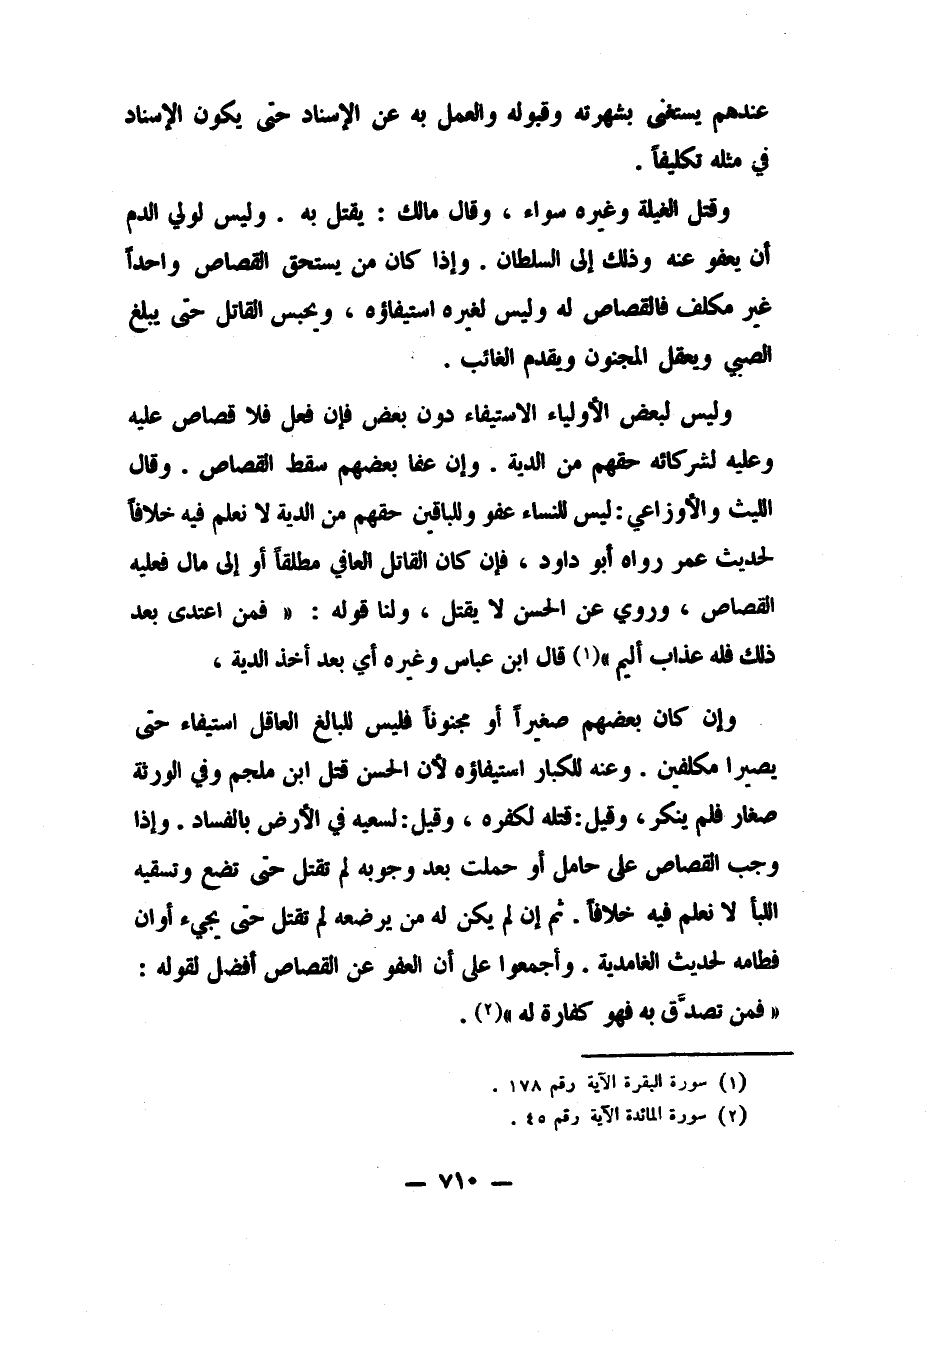 عندهم يستغنى بشهرته وقبوله والعمل به عن الإسناد حتى يكون الإسناد
في مثله تكليفاً .
وقتل الغيلة وغيره سواء ، وقال مالك : يقتل به . وليس لولي الدم
أن يعفو عنه وذلك إلى السلطان . وإذا كان من يستحق القصاص واحداً
غير مكلف فالقصاص له وليس لغيره استيفاؤه ، ويحبس القاتل حتى يبلغ
الصبي ويعقل المجنون ويقدم الغائب .
وليس لبعض الأولياء الاستيفاء دون بعض فإن فعل فلا قصاص عليه
وعليه لشركائه حقهم من الدية . وإن عفا بعضهم سقط القصاص . وقال
الليث والأوزاعي : ليس للنساء عفو وللباقين حقهم من الدية لا نعلم فيه خلافاً
لحديث عمر رواه أبو داود ، فإن كان القاتل العافي مطلقاً أو إلى مال فعليه
القصاص ، وروي عن الحسن لا يقتل ، ولنا قوله : « فمن اعتدى بعد
ذلك فله عذاب أليم »(١) قال ابن عباس وغيره أي بعد أخذ الدية ،
وإن كان بعضهم صغيراً أو مجنوناً فليس للبالغ العاقل استيفاء حتى
يصيرا مكلفين . وعنه للكبار استيفاؤه لأن الحسن قتل ابن ملجم وفي الورثة
صغار فلم ينكر ، وقيل : قتله لكفره ، وقيل : لسعيه في الأرض بالفساد . وإذا
وجب القصاص على حامل أو حملت بعد وجوبه لم تقتل حتى تضع وتسقيه
اللبأ لا نعلم فيه خلافاً . ثم إن لم يكن له من يرضعه لم تقتل حتى يجيء أوان
فطامه لحديث الغامدية . وأجمعوا على أن العفو عن القصاص أفضل لقوله :
« فمن تصدَّق به فهو كفارة له »(٢) .
(١) سورة البقرة الآية رقم ١٧٨ .
(٢) سورة المائدة الآية رقم ٤٥ .
— ٧١٠ —